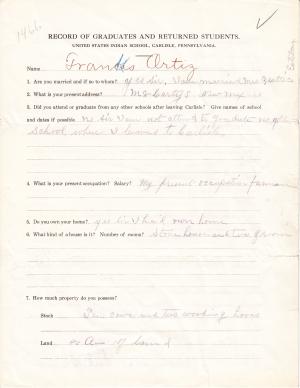 1466
RECORD OF GRADUATES AND RETURNED STUDENTS.
UNITED STATES INDIAN SCHOOL, CARLISLE, PENNSYLVANIA.
Name Frances Ortiz
1. Are you married and if so to whom? yes sir, I am married
2. What is your present address? McCartys New Mex
3. Did you attend or graduate from any other schools after leaving Carlisle? Give names of school
and dates if possible no sir I am not attend to graduate
school when I
4. What is your present occupation? Salary? My present occupation farmer
5. Do you own your home? yes sir I had own home
6. What kind of a house is it? Number of rooms? Stone house and two room
7. How much property do you possess?
Stock cows and two working horses
Land of land